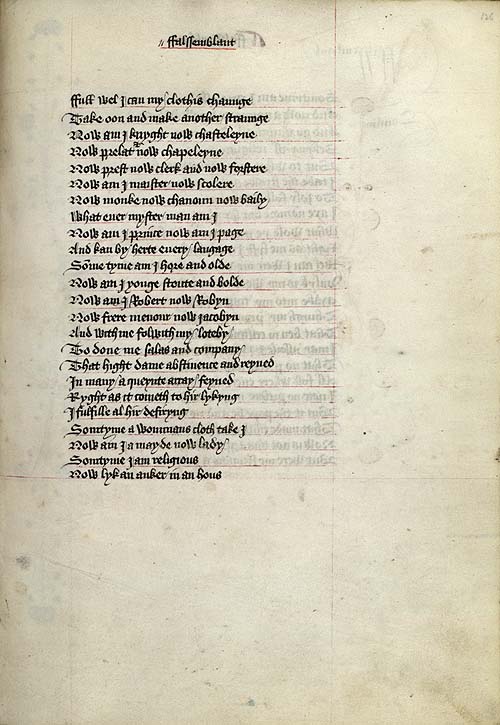 ffalssemblant
ffull wel I can my clothis chaunge
Take oon and make another straunge
Now am I knyght now chasteleyne
Now prelat now chapeleyne
Now prest now clerk and now forstere
Now am I maister now scolere
Now monke now chanoun now baily
What euer myster man am I
Now am I prince now am I page
And kan by herte euery langage
Somme tyme am I hore and olde
Now am I yonge stoute and bolde
Now am I Robert now Robyn
Now frere menour now iacobyn
And with me folwith my loteby
To done me solas and company
That hight dame abstinence and reyned
In many a queynte array feyned
Ryght as it cometh to hir lykyng
I fulfille al hir desiryng
Somtyme a wommans cloth take I
Now am I a mayde now lady
Somtyme I am religious
Now lyk an anker in an hous